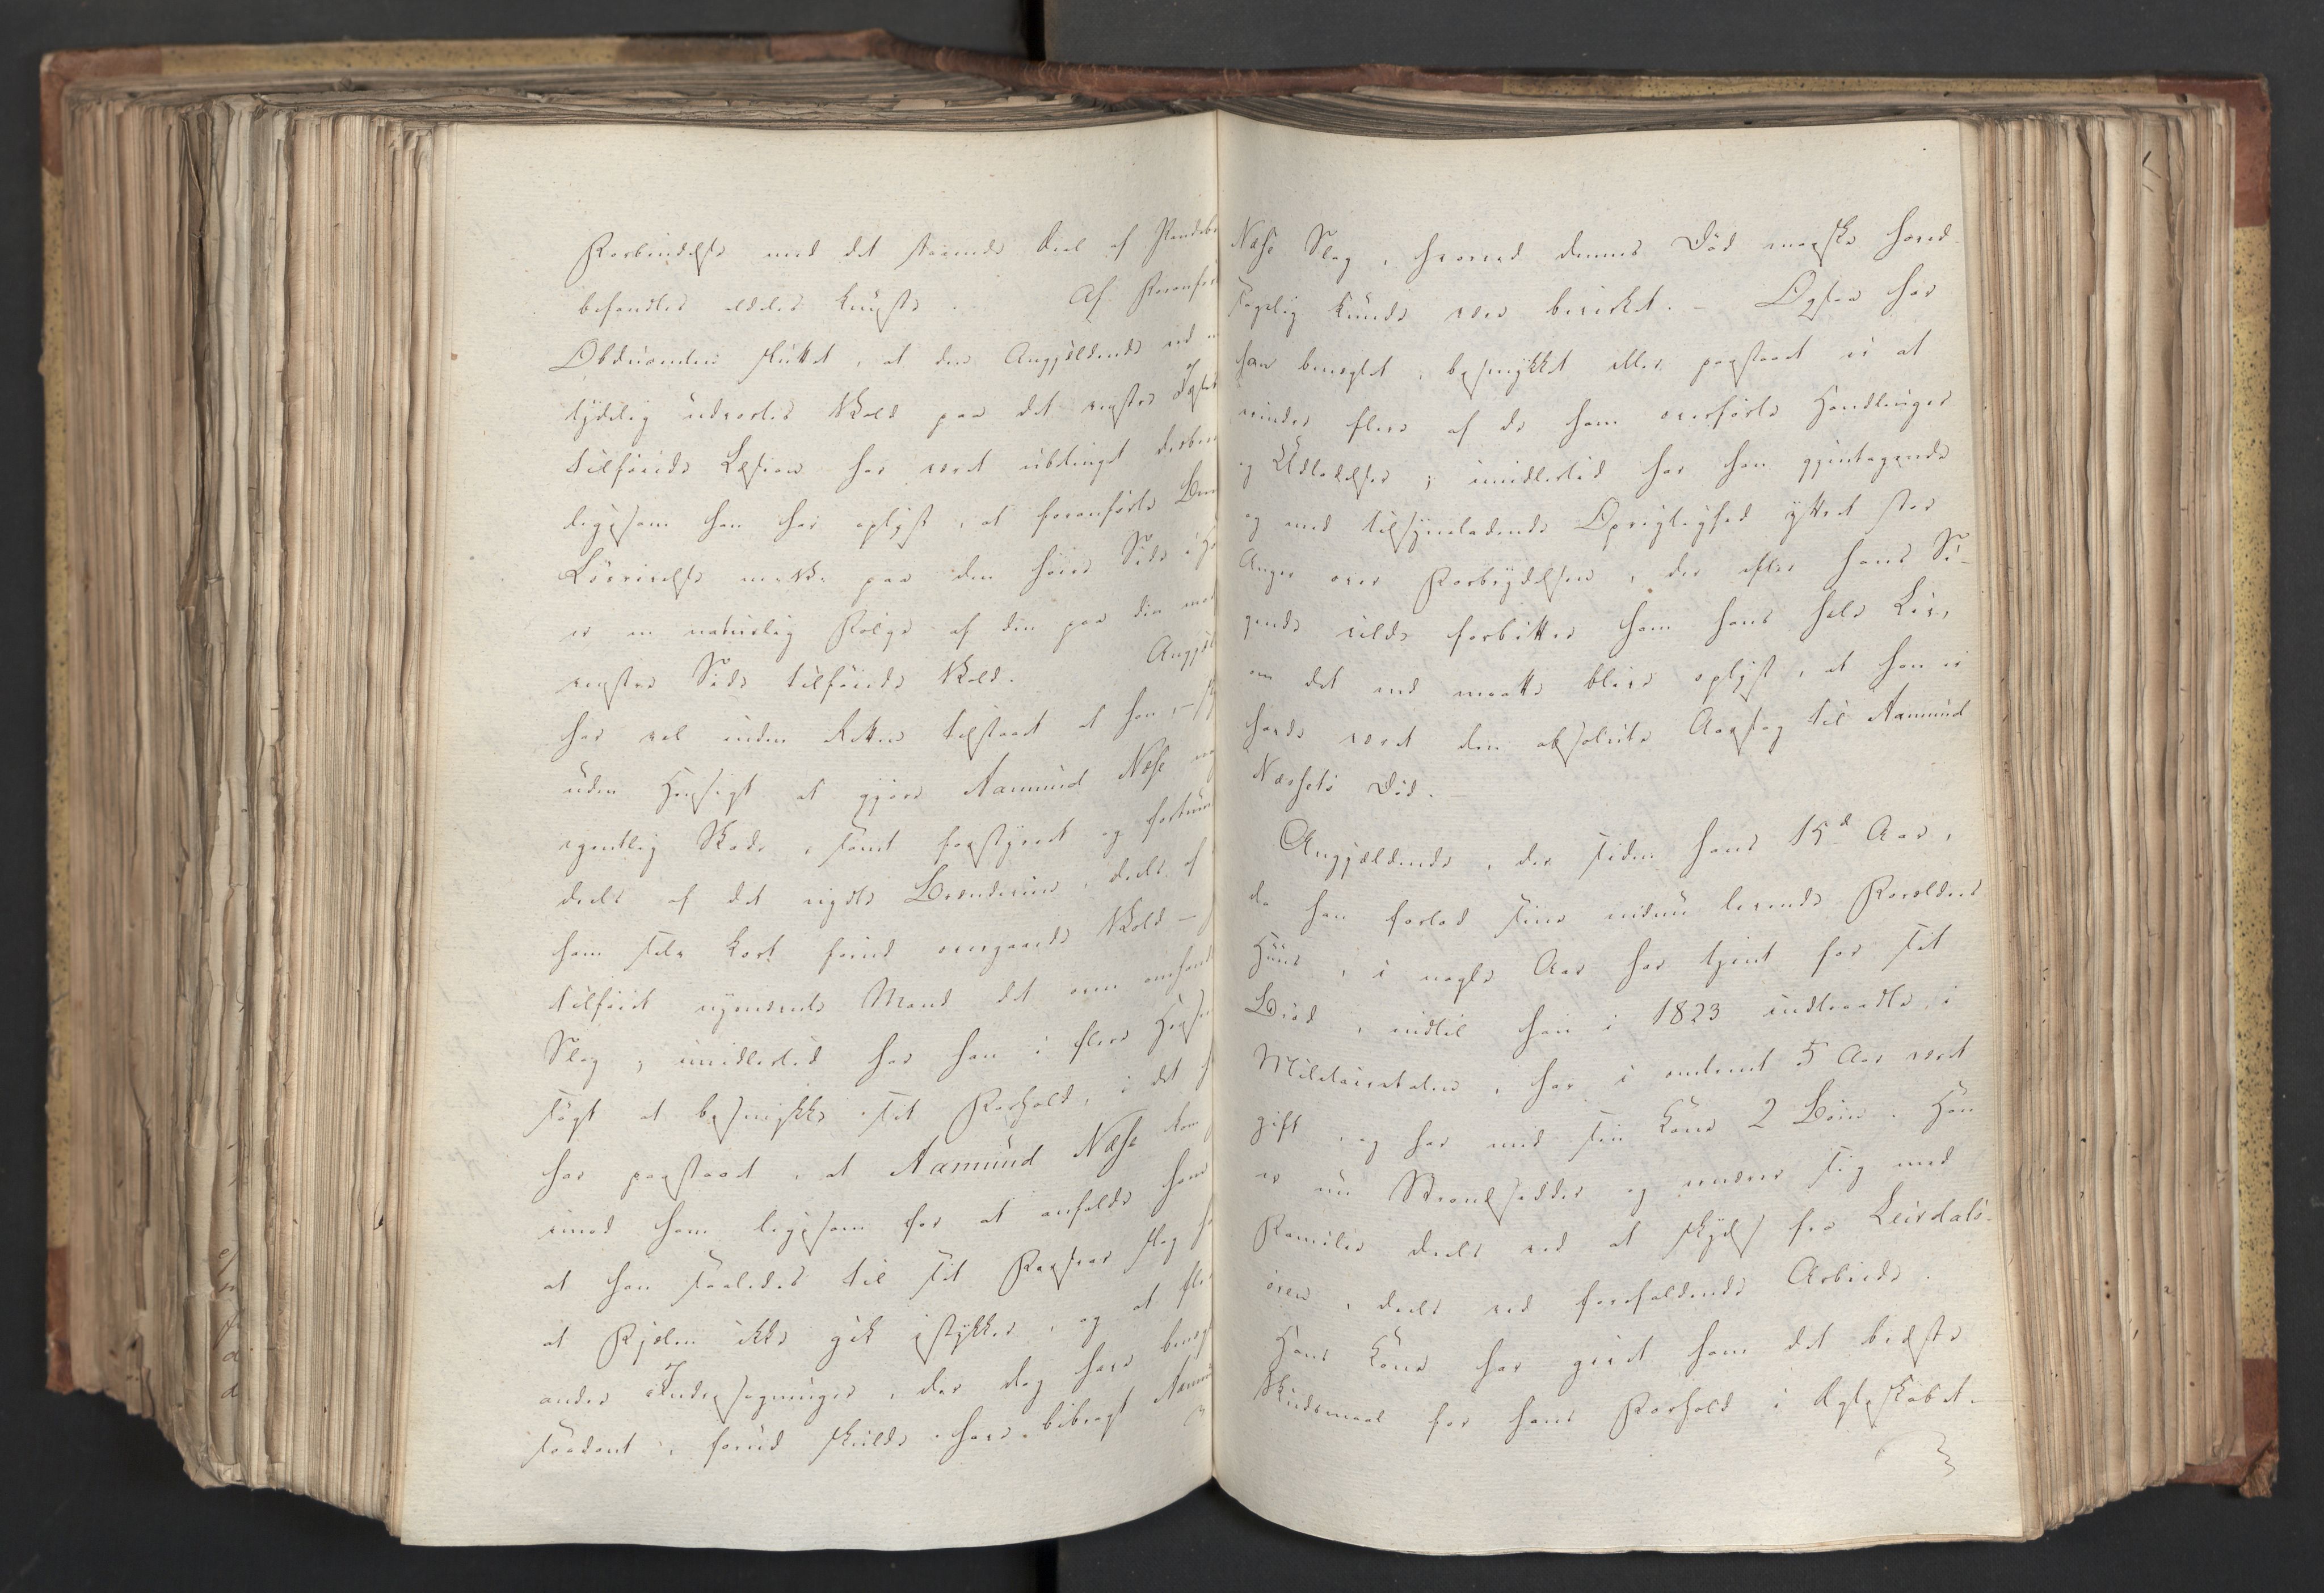 Forbindelse med det svarende Deel af Pandebe
befandtes aldeles knuste. Af Foranfør
Obducenten sluttet, at den Angjeldende ved u
tydelig udvortes Vold paa det venstre
tilføiede Læsion har været ubetinget dræben
ligesom han har oplyst, at foranførte Been
Løsrivelse paa den høire Side
er en naturlig Følge af den paa den mod
venstre Side tilføiede Vold. Angjel
har vel inden Retten tilstaaet at han,
uden Hensigt at gjøre Aamund Næse no
egentlig Skade, samt forstyrret og fortum
deels af det nydte Brændeviin, deels af
ham selv kort forud overgaaede Vold —
tilføiet nysnævnte Mand det omhand
Slag; imidlertid har han i flere Hense
søgt at besmykke sit Forhold, i det h
har paastaaet, at Aamund Næse kom
imod ham ligesom for at anfalde ham
at han saaledes til sit Forsvar slog h
at Fjælen ikke gik istykker, og at fle
andre Indesognninger, der dog have benegt
saadant, forud skulde have bibragt Aamun
Næse Slag, hvorved dennes Død maaske hoved-
sagelig kunde være bevirket. — Ogsaa har
han benegtet, besmykket eller paastaaet ei at
mindes flere af de ham overførte Handlinger
og Udladelser; imidlertid har han gjentagende
og med tilsyneladende Oprigtighed yttret stor
Anger over Forbrydelsen, der efter hans Si-
gende vilde forbittre ham hans hele Liv,
om det end maatte blive oplyst, at han ei
havde været den absolute Aarsag til Aamund
Næsses Død. —
Angjældende, der siden hans 15d Aar,
da han forlod sine endnu levende Forældres
Huus, i nogle Aar har tjent for sit
Brød, indtil han i 1823 indtraadte i
Militairetaten, har i omtrent 5 Aar været
gift, og har med sin Kone 2 Børn. Han
er nu Strandsidder og nærer sig med
Familie deels ved at skydse fra Leirdals-
øren, deels ved forefaldende Arbeide.
Hans Kone har givet ham det bedste
Skudsmaal for hans Forhold i Ægteskabet. —